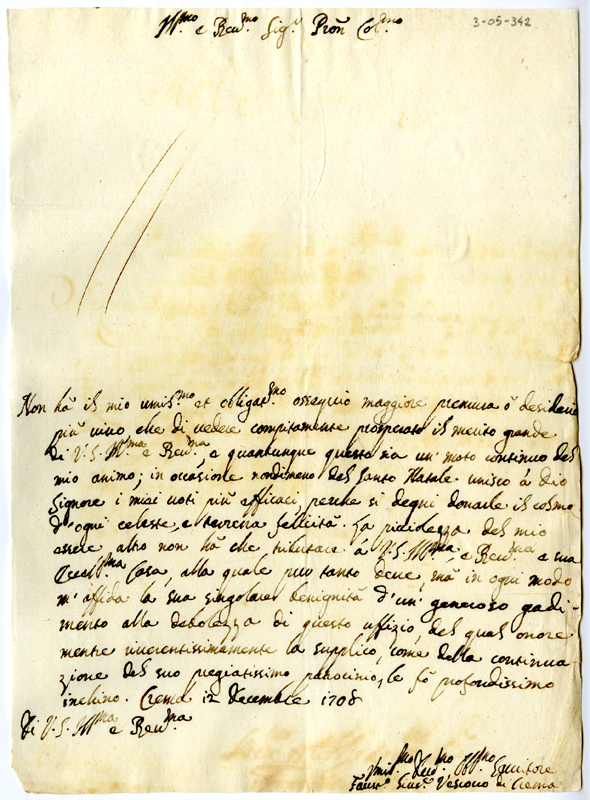 Ill.mo e Rev.mo Sig.r Pron Col.mo
3-05-342
Non hà il mio umil.mo et obligat.mo ossequio maggiore premura ò desiderio
più vivo che di vedere compitamente prosperato il merito grande
di V.S. Ill.ma e Rev.ma, e quantunque questo sia un' moto continuo del
mio animo; in occasione nondimeno del Santo Natale unisco à Dio
Signore i miei voti più efficaci, perche si degni donarle il colmo
d'ogni celeste, e terrena felicità. La picidezza del mio
essere altro non hà che tributare à V.S. Ill.ma e Rev.ma e sua
Ecell.ma Casa, alla quale pur tanto deve, mà in ogni modo
m'affida la sua singolare benignità d'un' generoso gradi-
mento alla debolezza di questo uffizio, del qual onore
mentre riverentissimamente la supplico, come della continua-
zione del suo pregiatissimo patrocinio, le fò profondissimo
inchino. Crema 12 Decembre 1708
Di V.S. Ill.ma e Rev.ma
Umil.mo Dev.mo Obl.mo Servitore
Faust.o Gius.e Vescovo di Crema